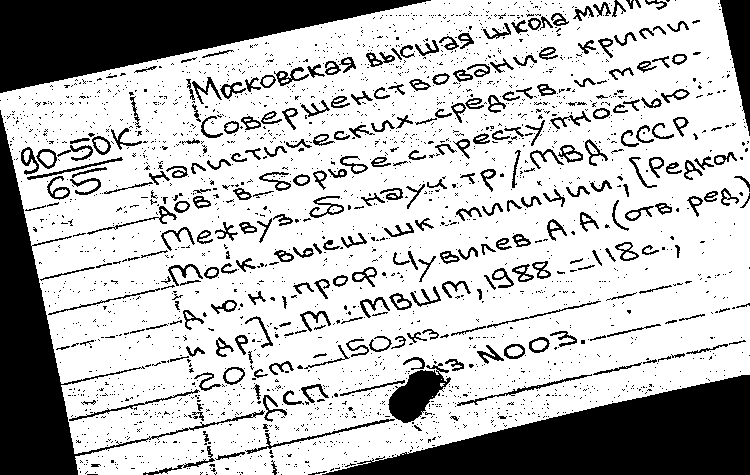 90-50К
65
Московская высшая школа милиц-
Совершенствование крими-
налистических средств и мето-
дов в борьбе с преступностью:
Межвуз. сб. науч. тр. / МВД СССР,
Моск. высш. шк. милиции; [Редкол.:
д.ю.н., проф. Чувилев А.А. (отв. ред.)
и др.]. - М.: МВШМ, 1988. - 118с.;
20 см. - 150 экз.
ДСП. Экз. N003.